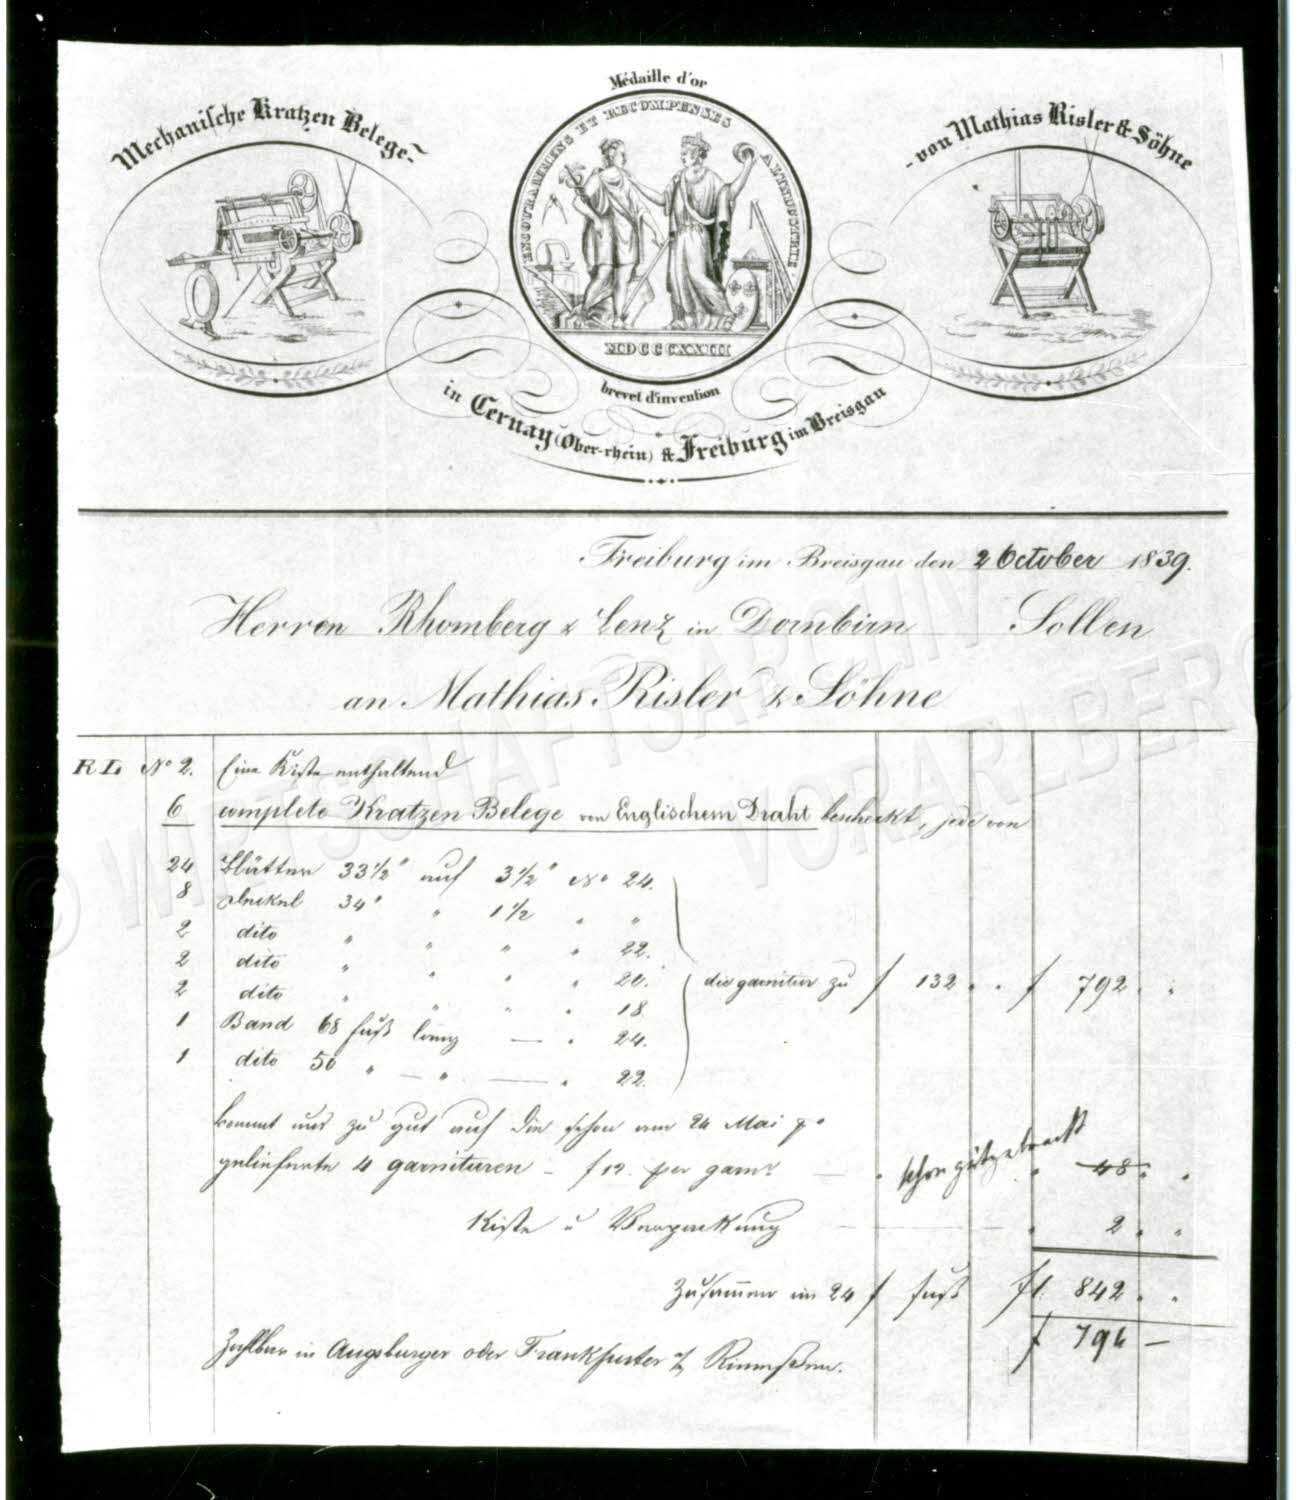 Médaille d'or
Mechanische Kratzen Belege
von Mathias Risler & Söhne
ENCOURAGEMENS ET RECOMPENSES A L'INDUSTRIE
MDCCCXXIII
brevet d'invention
in Cernay (Ober-rhein) & Freiburg im Breisgau
Freiburg im Breisgau den 2 October 1839.
Herren Rhomberg & Lenz in Dornbirn Sollen
an Mathias Risler & Söhne
RL No 2. Eine Kiste enthaltend
6 complete Kratzen Belege von Englischem Draht besteckt, jede von
24 Blätter 33 1/2" auf 3 1/2" No 24.
8 Deckel 34" " 1 1/2 " "
2 dito " " " " 22.
2 dito " " " " 20.
2 dito " " " " 18.
1 Band 68 fuß lang — " 24.
1 dito 50 " — " — " 22.
die garnitur zu f 132 " " f 792 " "
kommt uns zu gut auf die schon am 24 Mai
gelieferte 4 garnituren – f 12. per garnr — " schon " 48 " "
Kiste u Verpackung — " 2 " "
Zusammen im 24 f fuß fl. 842 " "
f 794 —
Zahlbar in Augsburger oder Frankfurter Rimessen.
© WIRTSCHAFTSARCHIV VORARLBERG